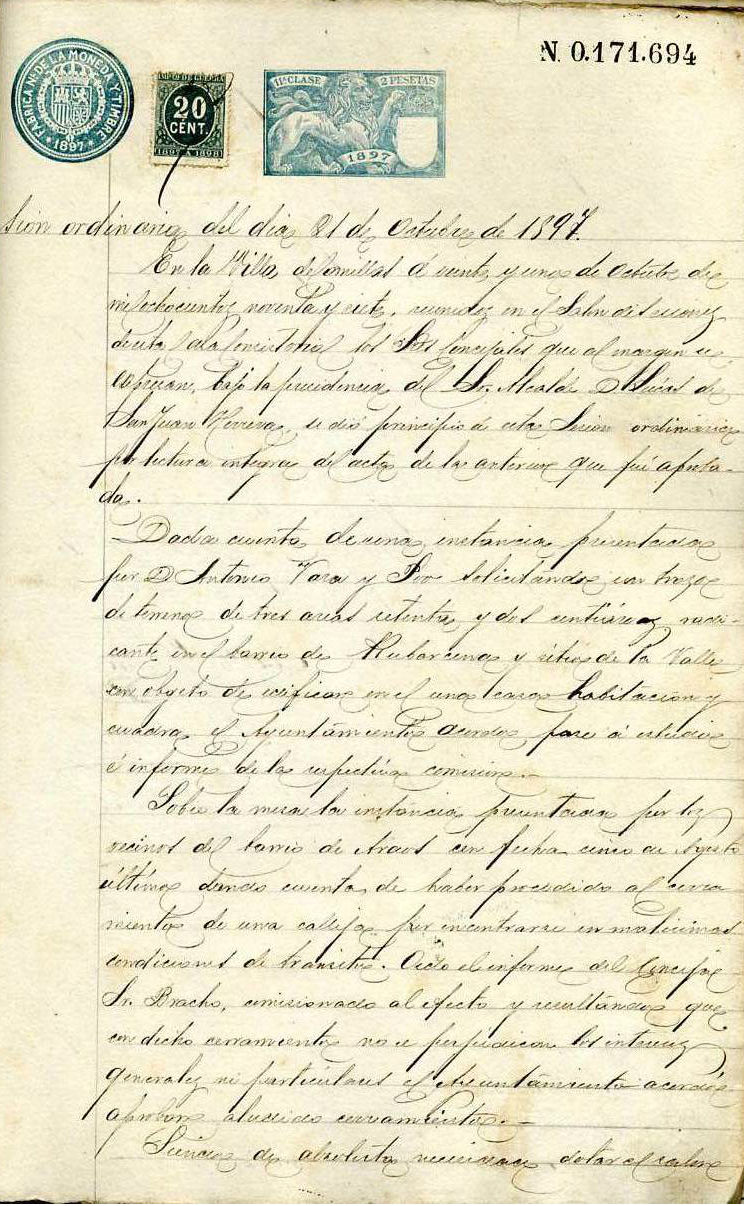 N. 0.171.694
FABRICA NAL DE LA MONEDA Y TIMBRE
* 1897 *
IMPTO DE GUERRA
20
CENT.
1897 A 1898
11ª CLASE 2 PESETAS
1897
sion ordinaria del dia 21 de Octubre de 1897.
En la Villa de Comillas á veinte y uno de Octubre de
mil ochocientos noventa y siete, reunidos en el Salon de sesiones
de esta Casa Consistorial los Sres Concejales que al margen se
espresan, bajo la presidencia del Sr. Alcalde D. Lucas de
San Juan Herrera, se dió principio á esta Sesion ordinaria
por lectura integra del acta de la anterior que fué aproba-
da.
Dada cuenta de una instancia presentada
por D Antonio Vara y Poo solicitando un trozo
de terreno de tres areas setenta y dos centiáreas radi-
cante en el barrio de Rubarcena y sitio de la Valle
con objeto de edificar en el una casa habitacion y
cuadra, el Ayuntamiento acordó pase á estudio
é informe de la respectiva comision.-
Sobre la mesa la instancia presentada por los
vecinos del barrio de Araos con fecha cinco de Agosto
último dando cuenta de haber procedido al cerra
miento de una calleja por encontrarse en malisimas
condiciones de transito. Oido el informe del Concejal
Sr. Bracho, comisionado al efecto y resultando que
con dicho cerramiento no se perjudican los intereses
generales ni particulares el Ayuntamiento acordó
aprobar aludido cerramiento.-
Siendo de absoluta necesidad dotar el